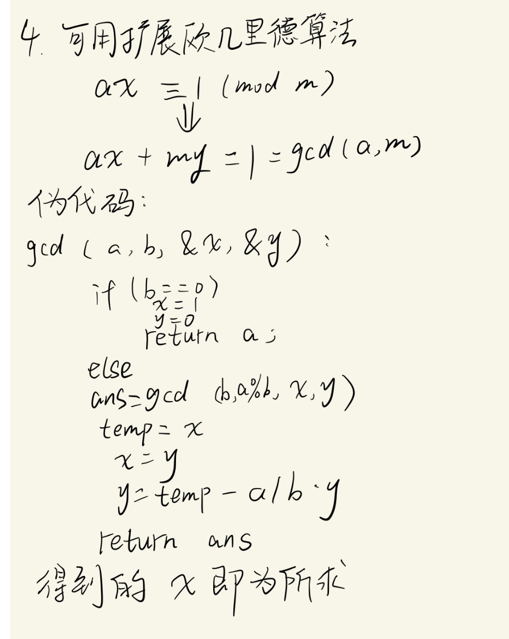 4. 可用扩展欧几里德算法
ax ≡ 1 (mod m)
⇓
ax + my = 1 = gcd(a,m)
伪代码:
gcd (a, b, &x, &y) :
if (b==0)
x=1
y=0
return a;
else
ans=gcd (b,a%b, x,y)
temp= x
x=y
y=temp - a/b·y
return ans
得到的 x 即为所求